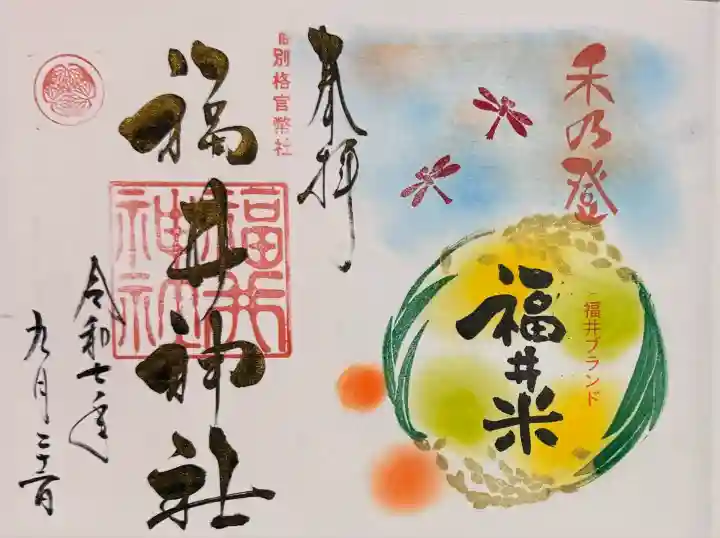 禾乃登
福井ブランド
福井米
奉拝
旧別格官幣社
福井神社
福井
神社
令和七年
九月二十